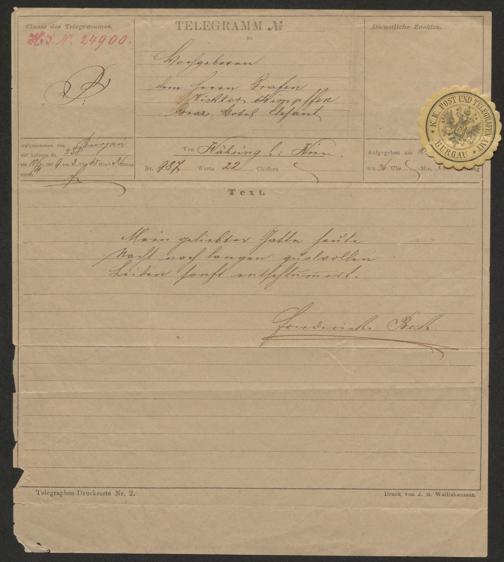 Classe des Telegrammes.
H.I.N. 24900.
TELEGRAMM №
an
Dienstliche Zusätze.
Hochgeboren
dem Herrn Grafen
Graz Hotel Elefant
Von Währing b. Wien
Nr. 987 Worte 22 Chiffern
Aufgegeben am
Uhr Min.
K.K. POST UND TELEGRAFEN AMT
BURGAU
Text.
Mein geliebter Gatte heute
Nacht nach langen qualvollen
Leiden sanft entschlummert.
Friederike
Telegraphen-Drucksorte Nr. 2.
Druck von J. B. Wallishausser.